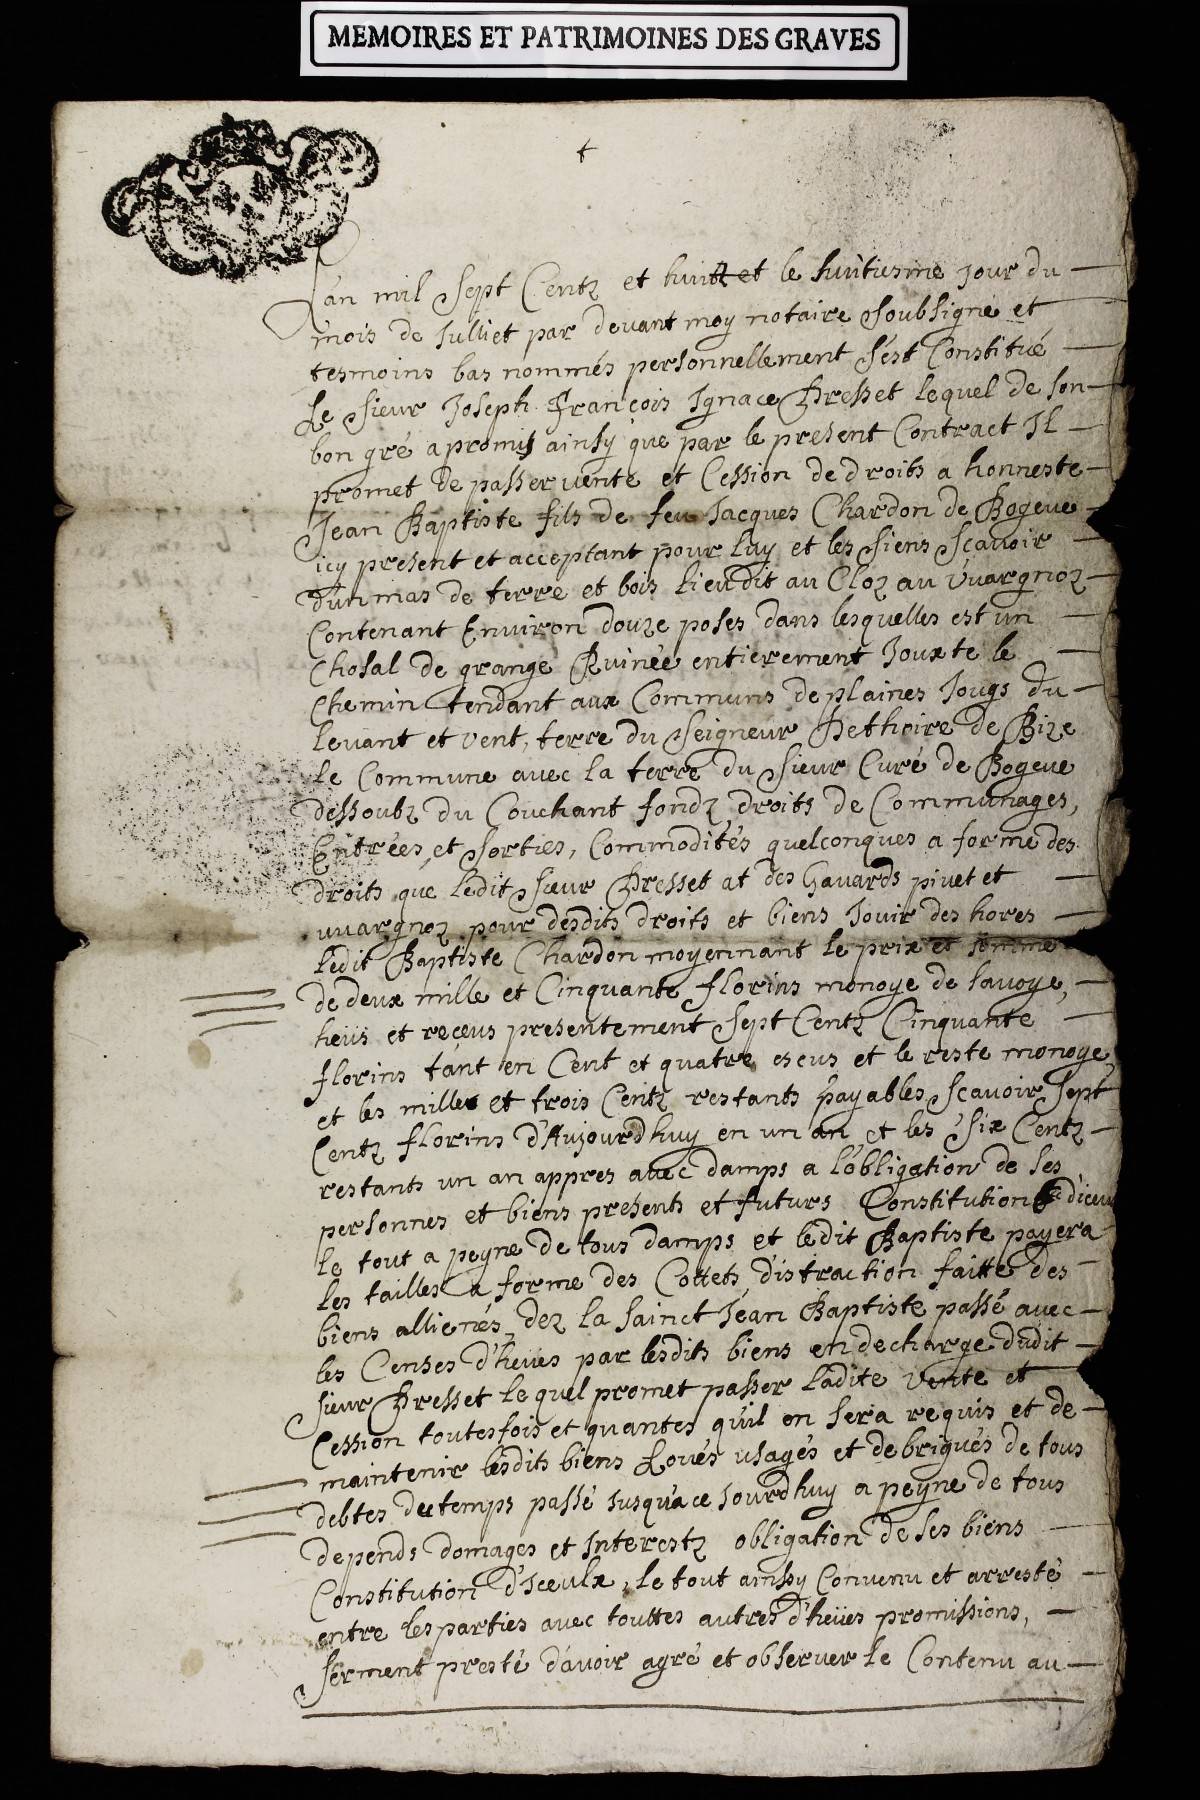 MEMOIRES ET PATRIMOINES DES GRAVES
L'an mil sept Centz et huit et le huitiesme jour du
mois de Julliet par devant moy notaire soubsigné et
tesmoins bas nommés personnellement s'est Constitué
Le sieur Joseph François Ignace Presset lequel de son
bon gré a promis ainsy que par le present Contract Il
promet de passer vente et Cession de droits a honneste
Jean Baptiste fils de feu Jacques Chardon de Bogeve
icy present et acceptant pour luy et les siens scavoir
d'un mas de terre et bois lieudit au Cloz au Vuargnoz
Contenant Environ douze poses dans lesquelles est un
Chosal de grange Ruinée entierement Jouxte le
Chemin tendant aux Communs de plaines Jougs du
levant et vent, terre du seigneur Dethoire de Bize
le Commune avec la terre du sieur Curé de Bogeve
dessoubz du Couchant fondz droits de Communages,
Entrées et sorties, Commodités quelconques a forme des
droits que ledit sieur Presset at des Gavards pivet et
vuargnoz pour desdits droits et biens Jouir des hores
ledit Baptiste Chardon moyennant le prix et somme
de deux mille et Cinquante florins monoye de Savoye,
heüs et receus presentement sept Centz Cinquante
florins tant en Cent et quatre escus et le reste monoye,
et les mille et trois Centz restants payables scavoir sept
Centz florins d'Aujourdhuy en un an et les six Centz
restants un an appres avec damps a l'obligation de ses
personnes et biens presents et futurs Constitution diceux
le tout a peyne de tous damps et ledit Baptiste payera
les tailles a forme des Cottets distraction faitte des
biens allienés dez la sainct Jean Baptiste passé avec
les Censes d'heues par lesdits biens en decharge dudit
sieur Presset lequel promet passer ladite vente et
Cession toutesfois et quantes qu'il en sera requis et de
maintenir lesdits biens Loués usagés et debrigués de tous
debtes du temps passé jusqu'a ce jourdhuy a peyne de tous
depends domages et Interestz obligation de ses biens
Constitution d'Iceulx, le tout ainssy Convenu et arresté
entre les parties avec touttes autres d'heües promissions,
serment presté d'avoir agré et observer le Contenu au